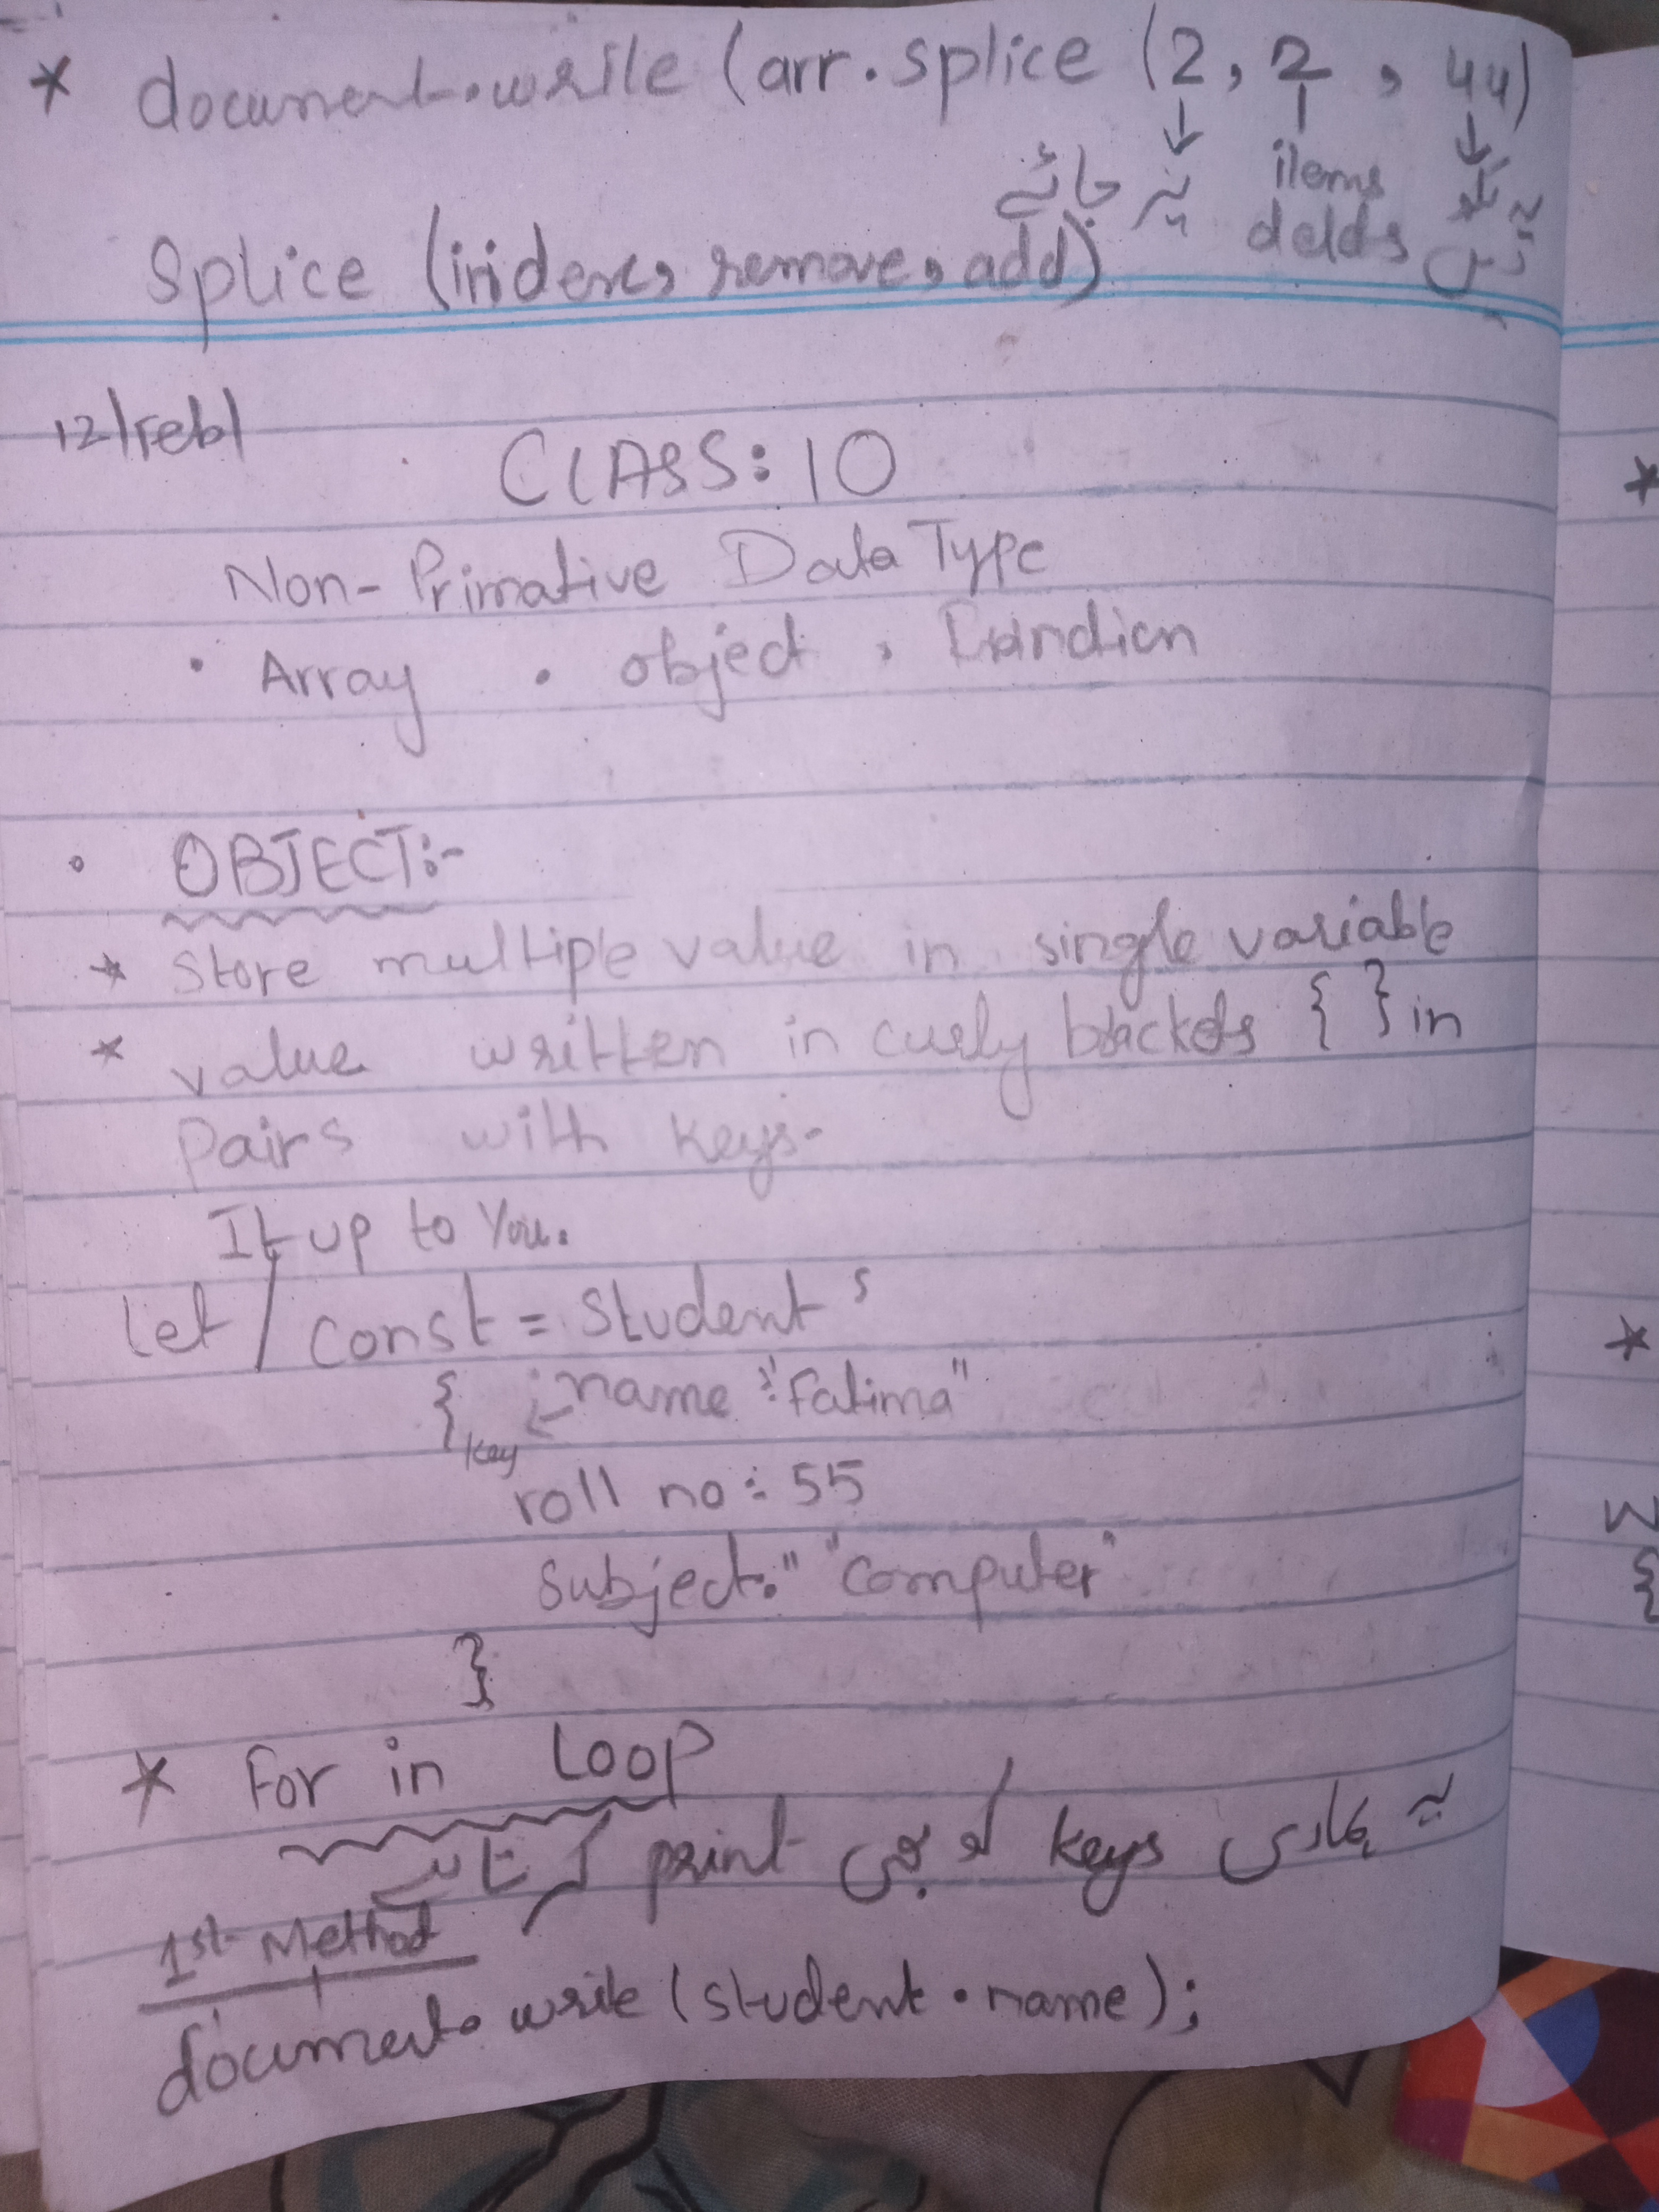 * document.write (arr.splice (2, 2, 44)
پہ جائے items
Splice (index, remove, add)
12/Feb/
CLASS:10
Non-Primative Data Type
• Array • object,
• OBJECT:-
* Store multiple value in single variable
* value written in curly brackets { } in
Pairs with keys.
It up to You.
let / const = Student s
{ name :"Fatima"
key
roll no: 55
Subject:" "computer"
}
* For in Loop
یہ ہماری keys کو بھی print کرتا ہے
1st Method
document.write (student.name);
*
*
{